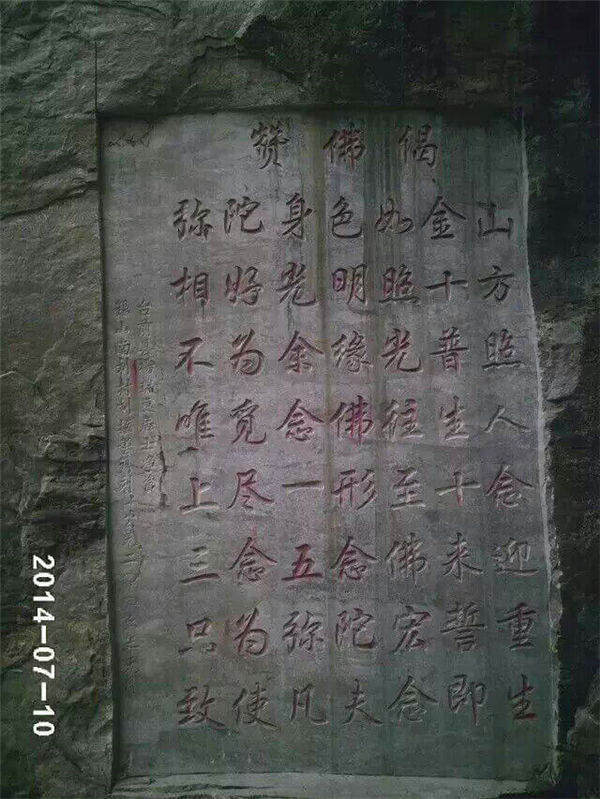 赞佛偈
弥陀身色如金山
相好光明照十方
不为余缘光普照
唯觅念佛往生人
上尽一形至十念
三念五念佛来迎
只为弥陀宏誓重
致使凡夫念即生
2014-07-10